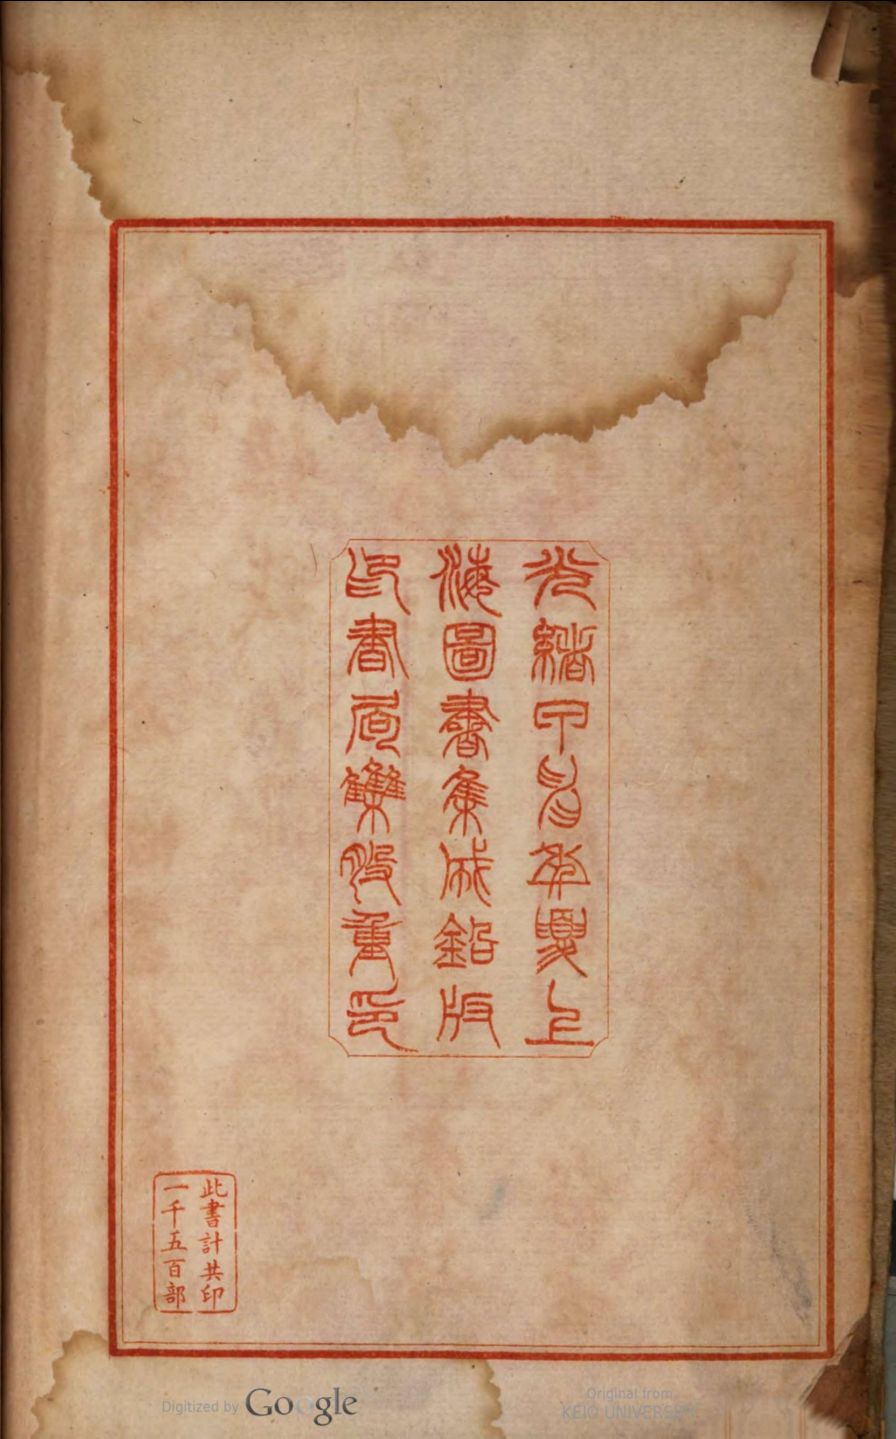 光緒甲申年夏上
海圖書集成鉛版
印書局集股重印
此書計共印
一千五百部
Digitized by Google
Original from
KEIO UNIVERSITY